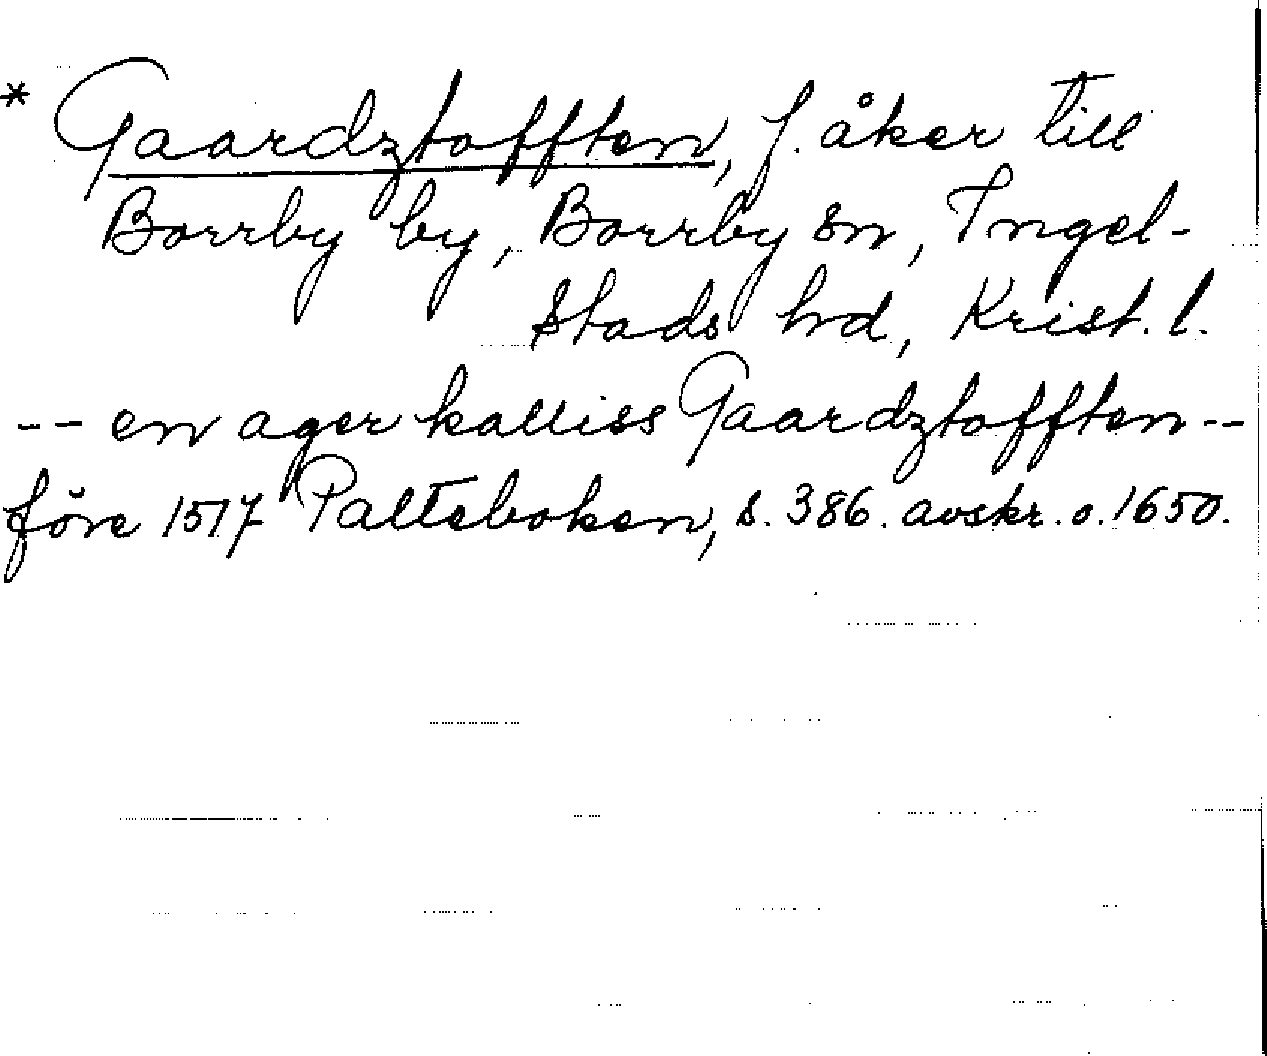 * Gaardztofften, f. åker till
Borrby by, Borrby sn, Ingel-
stads hd, Krist. l.
-- en ager kalliss Gaardztofften --
före 1517 Palteboken, s. 386. avskr. o. 1650.